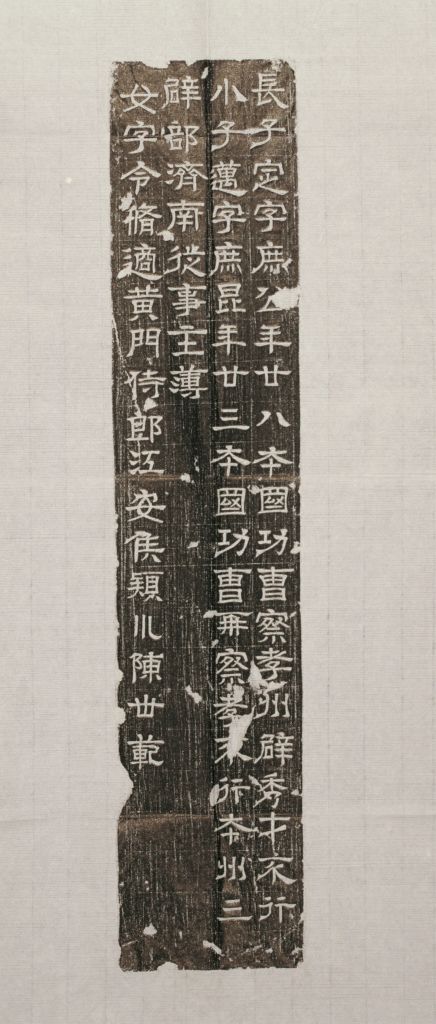 長子定字庶公年廿八夲國功曹察孝州辟秀才不行
小子邁字庶昆年廿三夲國功曹再察孝不行夲州三
辟部濟南從事主薄
女字令脩適黃門侍郎江安侯穎川陳世範